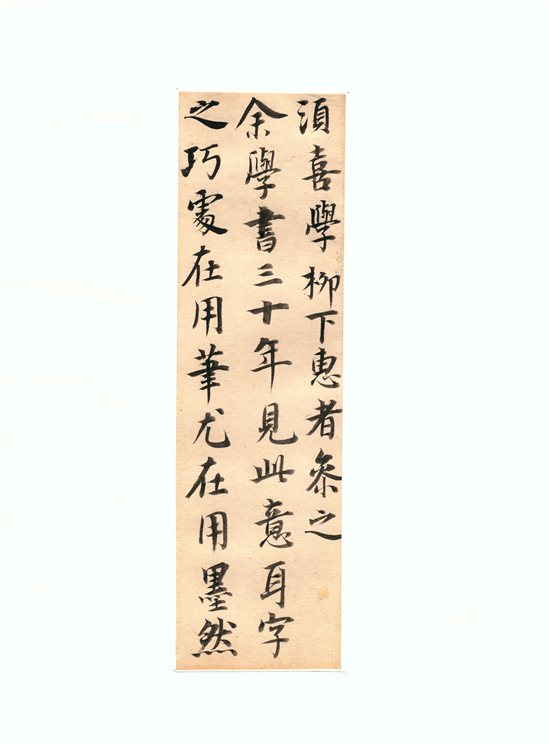 須喜學柳下惠者參之
余學書三十年見此意耳字
之巧處在用筆尤在用墨然